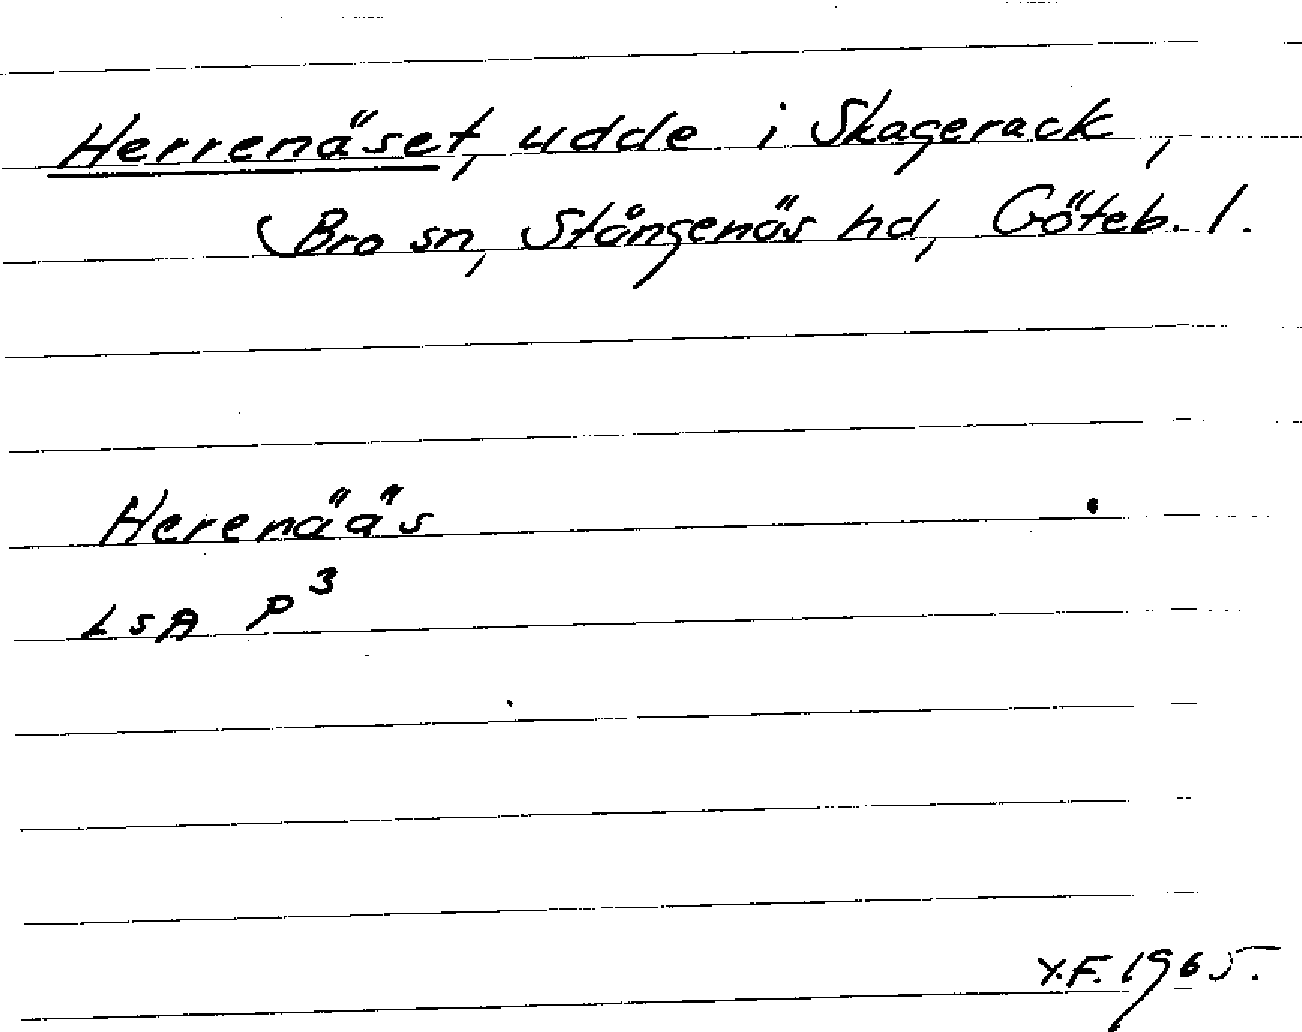 Herrenäset, udde i Skagerack,
Bro sn, Stångenäs hd, Göteb. l.
Herenääs
LSA P3
Y.F. 1965.